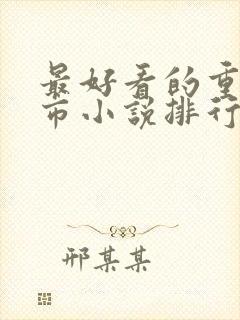 最好看的重
市小说排行
邢某某